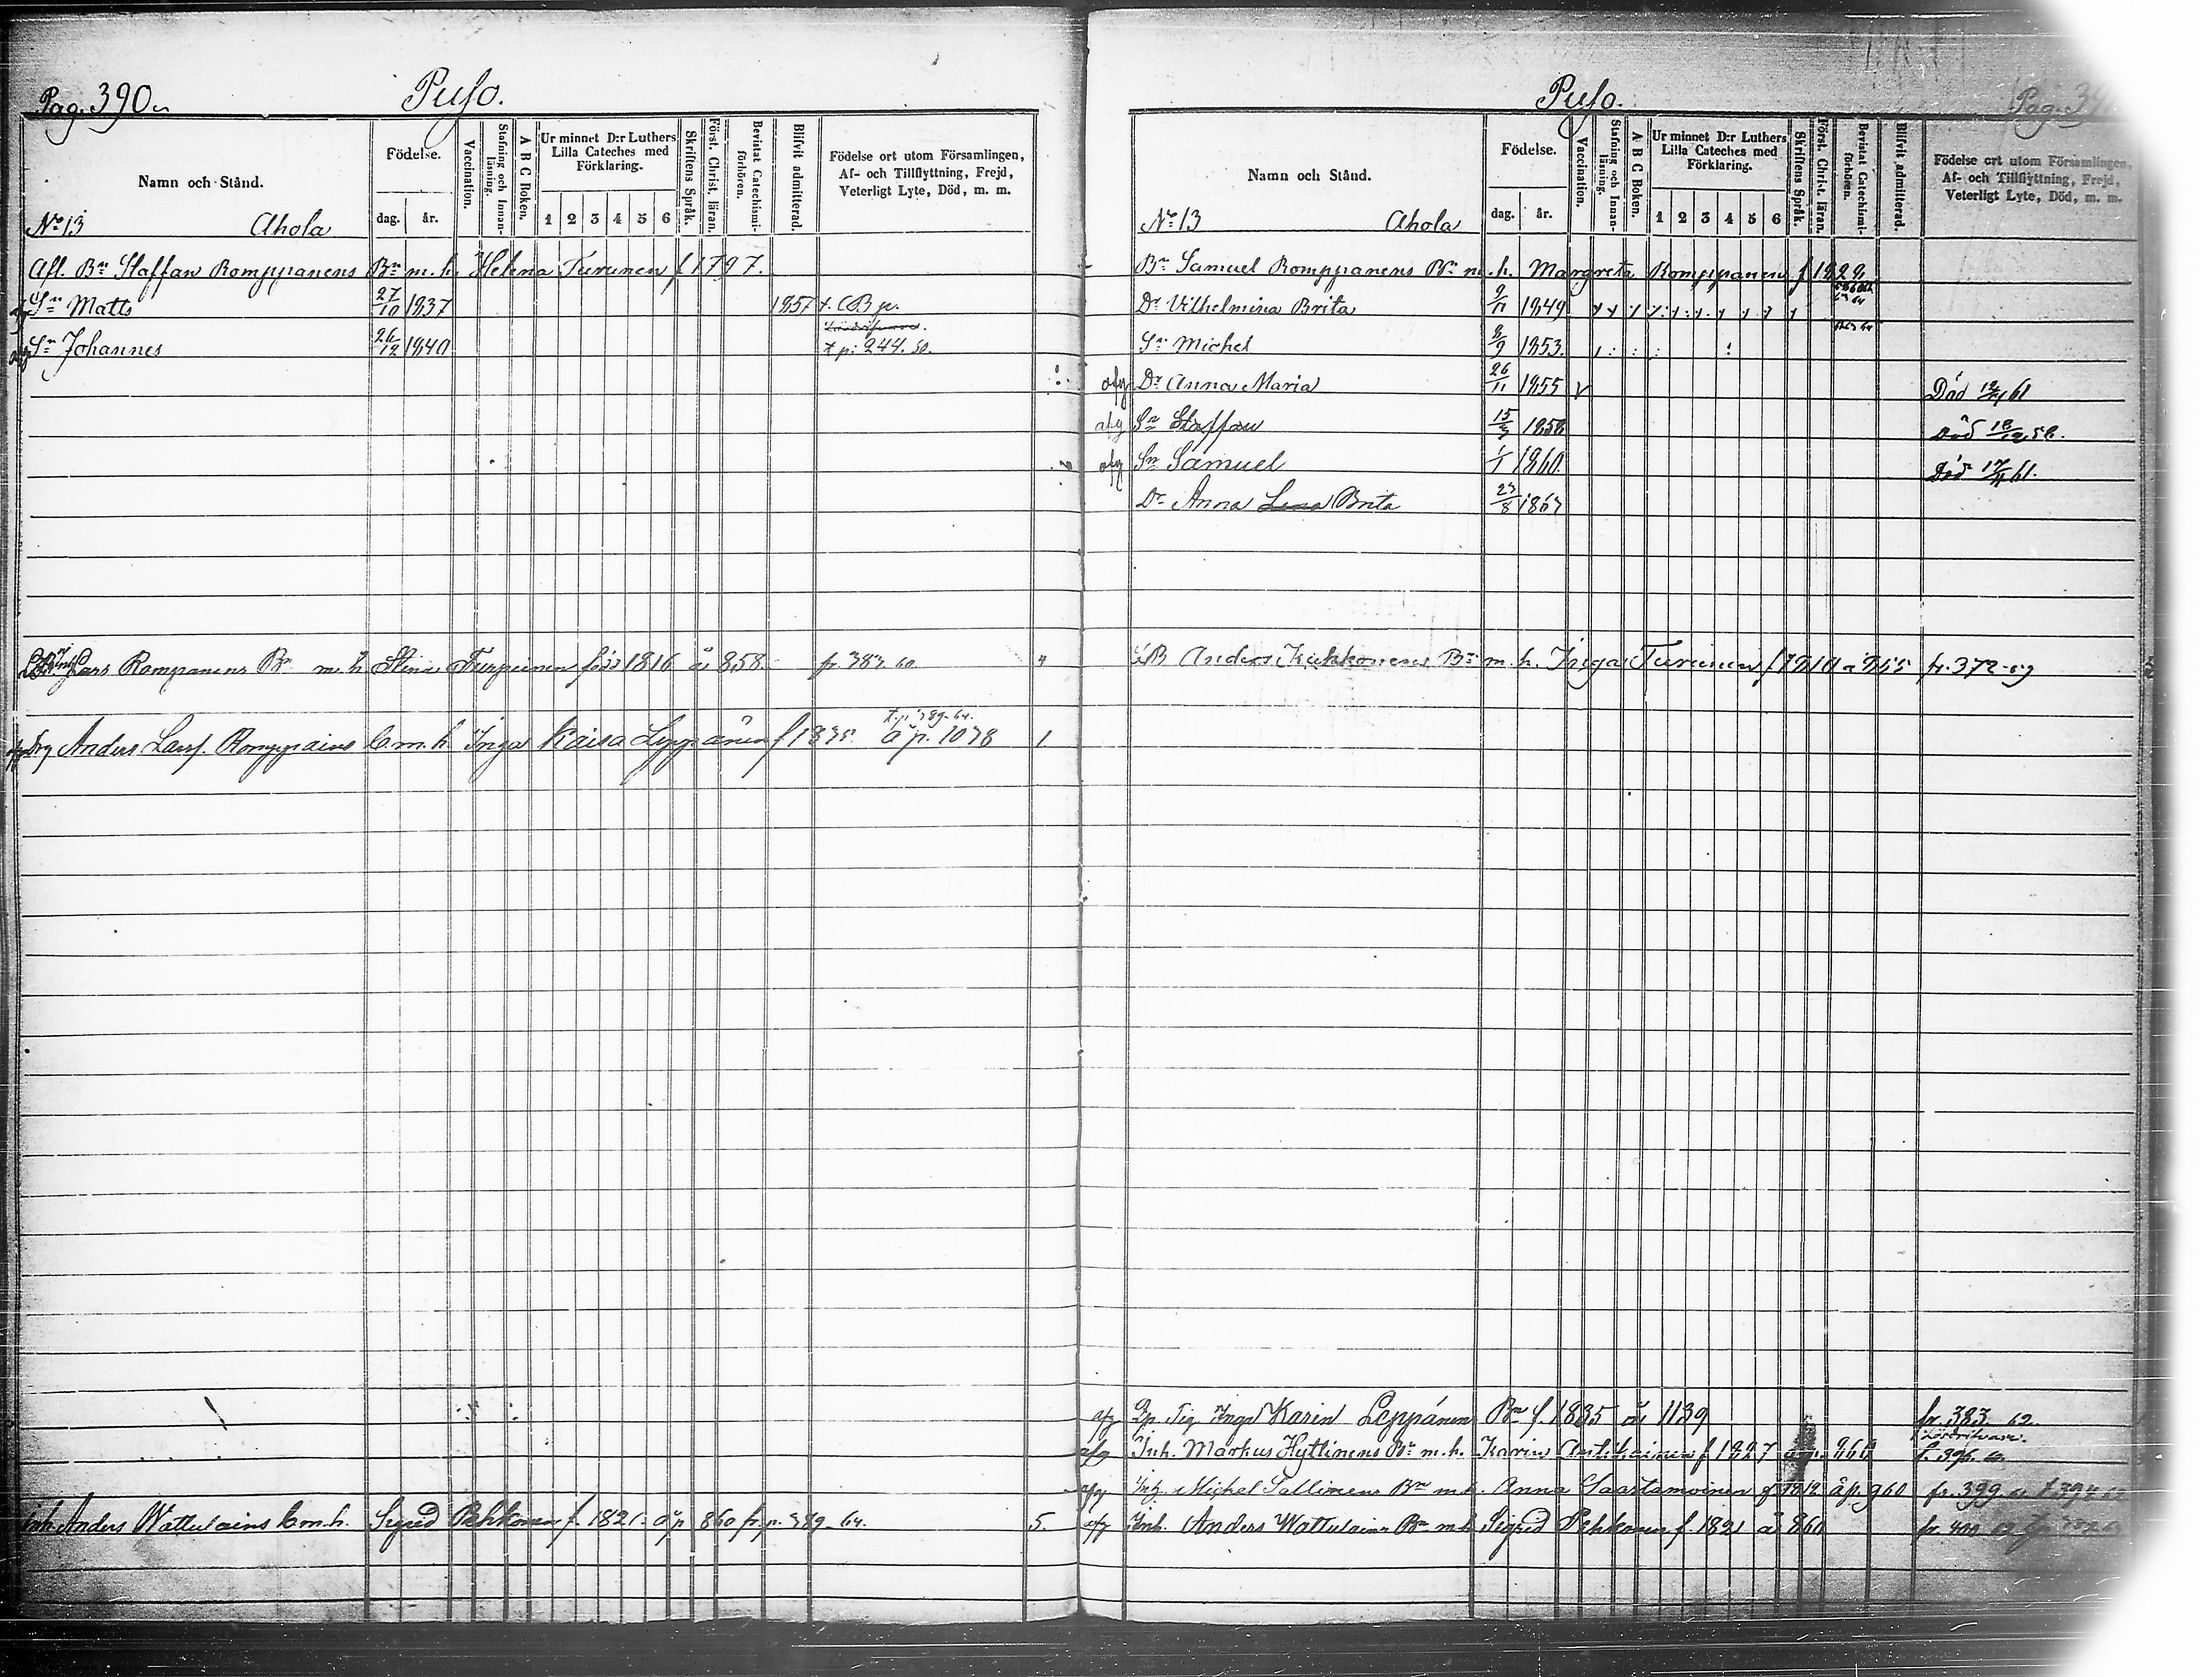 Pag. 390.
Puso.
Namn och Stånd.
Födelse.
dag. år.
Vaccination.
Stafning och Innanläsning.
A B C Boken.
Ur minnet D:r Luthers Lilla Cateches med Förklaring.
1 2 3 4 5 6
Skriftens Språk.
Först. Christ. läran.
Bevistat Catechismiförhören.
Blifvit admitterad.
Födelse ort utom Församlingen, Af- och Tillflyttning, Frejd, Veterligt Lyte, Död, m. m.
No 13 Ahola
Afl. Bn Staffan Romppanens Bn m. h. Helena Turunen f 1797.
Sn Matts 27/10 1837 1857
Sn Johannes 26/12 1840 t p. 244. 60.
Lars Rompanens Bn m. h Stina Turpeinen född 1816 å 858. fr. 383 60 4
t. p. 389-64.
Anders Larss. Romppains b. m. h. Inga Kaisa Leppänen f 1835. å p. 1078 1
Inh. Anders Wattulains b m. h. Sigrid Pehkonen f. 1821. å p 860 fr. p. 389-64. 5.
Puso.
Pag.
Namn och Stånd.
Födelse.
dag. år.
Vaccination.
Stafning och Innanläsning.
A B C Boken.
Ur minnet D:r Luthers Lilla Cateches med Förklaring.
1 2 3 4 5 6
Skriftens Språk.
Först. Christ. läran.
Bevistat Catechismiförhören.
Blifvit admitterad.
Födelse ort utom Församlingen, Af- och Tillflyttning, Frejd, Veterligt Lyte, Död, m. m.
No 13 Ahola
Bn Samuel Romppanens Bn m. h. Margreta Romppanen f 1828
Dr Vilhelmina Brita 9/11 1849
Sn Michel 8/9 1853.
afg Dr Anna Maria 26/11 1855 Död 61
afg Sn Staffan 15/3 1858 Död 18/12 58.
afg Sn Samuel 1/1 1860. Död 17/4 61.
Dr Anna Lena Brita 23/8 1863
Anders Kukkonens Bn m. h. Inga Turunen f 1810 å 855 fr. 372-59
afg Inga Karin Leppänen Bn f. 1835 å 1139 fr. 383. 62.
afg Inh. Markus Hyttinens Bn m. h. Karin Antikainen f 1827 868 f. 396.
afg Michel Sallinens Bn m. h. Anna Saastamoinen f 1812 å p. 960 fr. 399.
afg Inh. Anders Wattulains Bn m h Sigrid Pehkonen f. 1821 å 860 fr. 400